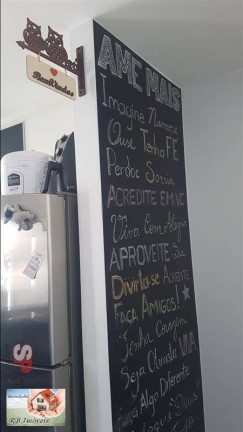 BemVindos
AME MAIS
Imagine Namore
Ouse Tenha FÉ
Perdoe Sorria
ACREDITE EM VC
Viva Com Alegria
APROVEITE
Divirta-se ACREDITE
FAÇA AMIGOS!
Tenha Coragem
Seja Ousado VIVA
FAÇA Algo Diferente
"Deus"
R.B Imóveis